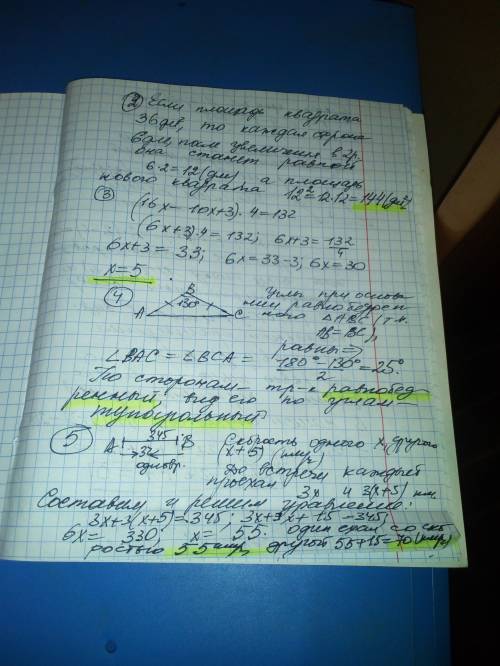 ② Если площадь квадрата
36 дм, то каждая сторона
6 дм, увеличения в 2р.
она станет равной
6·2=12(дм) а площадь
нового квадрата 12²=12·12=144(дм²)
③ (16x-10x+3)·4=132
(6x+3)·4=132; 6x+3=132/4
6x+3=33; 6x=33-3; 6x=30
x=5
④ B Углы при основа-
130° нии равнобедрен-
A C ного ΔABC (т.к.
AB=BC),
равны =>
∠BAC=∠BCA= 180°-130°/2=25°.
По сторонам- тр-к равнобед
ренный, вид его по углам-
тупоугольный
⑤ A 345 B Скорость одного x, другого
3ч (x+5) (км/ч)
одновр. До встречи каждый
проехал 3x и 3(x+5) км.
Составим и решим уравнение:
3x+3(x+5)=345, 3x+3x+15=345
6x=330; x=55. один ехал со ско
ростью 55 км/ч, другой 55+15=70(км/ч)